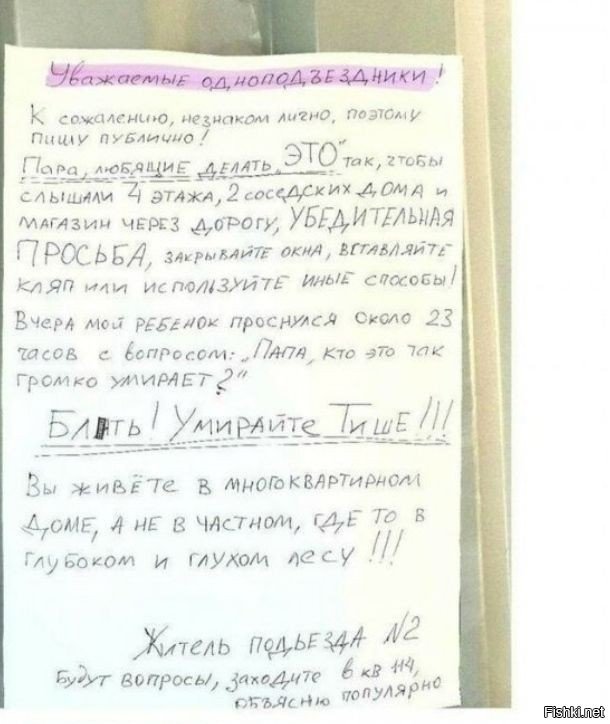 Уважаемые одноподъездники!
К сожалению, незнаком лично, поэтому
пишу публично!
Пара, любящие делать "ЭТО" так, чтобы
слышали 4 этажа, 2 соседских дома и
магазин через дорогу, УБЕДИТЕЛЬНАЯ
ПРОСЬБА, закрывайте окна, вставляйте
кляп или используйте иные способы!
Вчера мой ребенок проснулся около 23
часов с вопросом: „Папа, кто это так
громко умирает?"
Бл ть! Умирайте Тише!!!
Вы живёте в многоквартирном
доме, а не в частном, где то в
глубоком и глухом лесу!!!
Житель подьезда №2
Будут вопросы, заходите в кв 114,
объясню популярно
Fishki.net